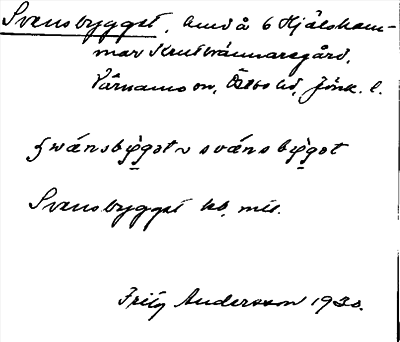 Svensbygget, Avd å 6 Hjälsham-
mar Krutbrännaregård,
Värnamo sn, Östbo hd, Jönk. l.
svánsbỳgət ~ svánsbỳgət
Svensbygget kb, mtl.
Fritz Andersson 1930.